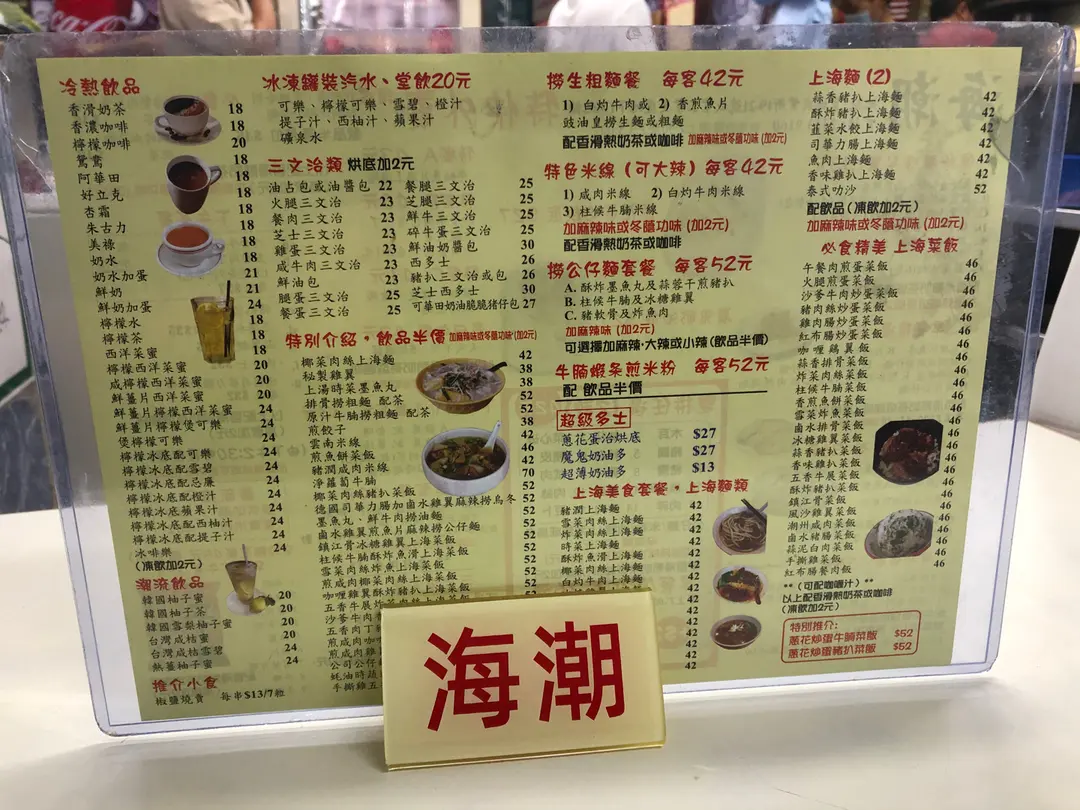 冷熱飲品
香滑奶茶 18
香濃咖啡 18
檸檬咖啡 20
鴛鴦 18
阿華田 18
好立克 18
杏霜 18
朱古力 18
美祿 18
奶水 18
奶水加蛋 21
鮮奶 21
鮮奶加蛋 24
檸檬水 18
檸檬茶 18
西洋菜蜜 18
檸檬西洋菜蜜 20
咸檸檬西洋菜蜜 20
鮮薑片檸檬西洋菜蜜
鮮薑片檸檬煲可樂 24
煲檸檬可樂 24
檸檬冰底配可樂 24
檸檬冰底配雪碧 24
檸檬冰底配忌廉 24
檸檬冰底配橙汁 24
檸檬冰底蘋果汁 24
檸檬冰底配西柚汁 24
檸檬冰底配提子汁 24
冰啡樂 24
(凍飲加2元)
潮流飲品
韓國柚子蜜 20
韓國柚子茶 20
韓國雪梨柚子蜜 20
台灣咸桔蜜 20
台灣咸桔雪碧 24
熱薑柚子蜜 24
推介小食
椒鹽燒賣 每串$13/7粒
冰凍罐裝汽水、堂飲20元
可樂、檸檬可樂、雪碧、橙汁
提子汁、西柚汁、蘋果汁
礦泉水
三文治類 烘底加2元
油占包或油醬包 22 餐腿三文治 25
火腿三文治 23 芝腿三文治 25
餐肉三文治 23 鮮牛三文治 25
芝士三文治 23 碎牛蛋三文治 25
雞蛋三文治 23 鮮油奶醬包 30
咸牛肉三文治 23 西多士 26
鮮油包 23 豬扒三文治或包 26
腿蛋三文治 25 芝士西多士 30
餐蛋三文治 25 可華田奶油脆脆豬仔包 27
特別介紹・飲品半價 加麻辣味或冬蔭功味(加2元)
椰菜肉絲上海麵 42
秘製雞翼 38
上湯時菜墨魚丸 38
排骨撈粗麵 配茶 52
原汁牛腩撈粗麵 配茶 52
煎餃子 38
雲南米線 42
煎魚餅菜飯 46
豬潤咸肉米線 42
淨蘿蔔牛腩 70
椰菜肉絲豬扒菜飯 52
德國司華力腸加鹵水雞翼麻辣撈烏冬 52
墨魚丸、鮮牛肉撈油麵 52
鹵水雞翼煎魚片麻辣撈公仔麵 52
鎮江骨冰糖雞翼上海菜飯 52
柱候牛腩酥炸魚滑上海菜飯 52
雪菜肉絲炸魚上海菜飯 52
煎咸肉椰菜肉絲上海菜飯 52
咖喱雞翼酥炸魚上海菜飯 52
五香牛展炸菜肉絲上海菜飯
沙爹牛肉
五香肉丁
煎咸肉咖
煎咸肉雞
公司公仔
蚝油時蔬
手撕雞五
撈生粗麵餐 每客42元
1) 白灼牛肉或 2) 香煎魚片
豉油皇撈生麵或粗麵
配香滑熱奶茶或咖啡 加麻辣味或冬蔭功味 (加2元)
特色米線 (可大辣) 每客42元
1) 咸肉米線 2) 白灼牛肉米線
3) 柱候牛腩米線
加麻辣味或冬蔭功味 (加2元)
配香滑熱奶茶或咖啡
撈公仔麵套餐 每客52元
A. 酥炸墨魚丸及蒜蓉干煎豬扒
B. 柱候牛腩及冰糖雞翼
C. 豬軟骨及炸魚肉
加麻辣味 (加2元)
可選擇加麻辣・大辣或小辣 (飲品半價)
牛腩蝦条煎米粉 每客52元
配 飲品半價
超級多士
蔥花蛋治烘底 $27
魔鬼奶油多 $27
超薄奶油多 $13
上海美食套餐・上海麵類
豬潤上海麵 42
雪菜肉絲上海麵 42
炸菜肉絲上海麵 42
時菜上海麵 42
酥炸魚滑上海麵 42
椰菜肉絲上海麵 42
白灼牛肉上海麵 42
42
42
42
42
42
上海麵 (2)
蒜香豬扒上海麵 42
酥炸豬扒上海麵 42
韮菜水餃上海麵 42
司華力腸上海麵 42
魚肉上海麵 42
香味雞扒上海麵 42
泰式叻沙 52
配飲品 (凍飲加2元)
加麻辣味或冬蔭功味 (加2元)
必食精美 上海菜飯
午餐肉煎蛋菜飯 46
火腿煎蛋菜飯 46
沙爹牛肉炒蛋菜飯 46
豬肉腸炒蛋菜飯 46
雞肉腸炒蛋菜飯 46
紅布腸炒蛋菜飯 46
咖喱雞翼菜飯 46
蒜香排骨菜飯 46
炸菜肉絲菜飯 46
柱侯牛腩菜飯 46
香煎魚餅菜飯 46
雪菜炸魚菜飯 46
鹵水排骨菜飯 46
冰糖雞翼菜飯 46
蒜香豬扒菜飯 46
香味雞扒菜飯 46
五香牛展菜飯 46
酥炸豬扒菜飯 46
鎮江骨菜飯 46
風沙雞翼菜飯 46
潮州咸肉菜飯 46
鹵水豬腸菜飯 46
蒜泥白肉菜飯 46
手撕雞菜飯 46
紅布腸餐肉飯 46
**(可配咖喱汁)**
以上配香滑熱奶茶或咖啡
(凍飲加2元)
特別推介:
蔥花炒蛋牛腩菜飯 $52
蔥花炒蛋豬扒菜飯 $52
海潮